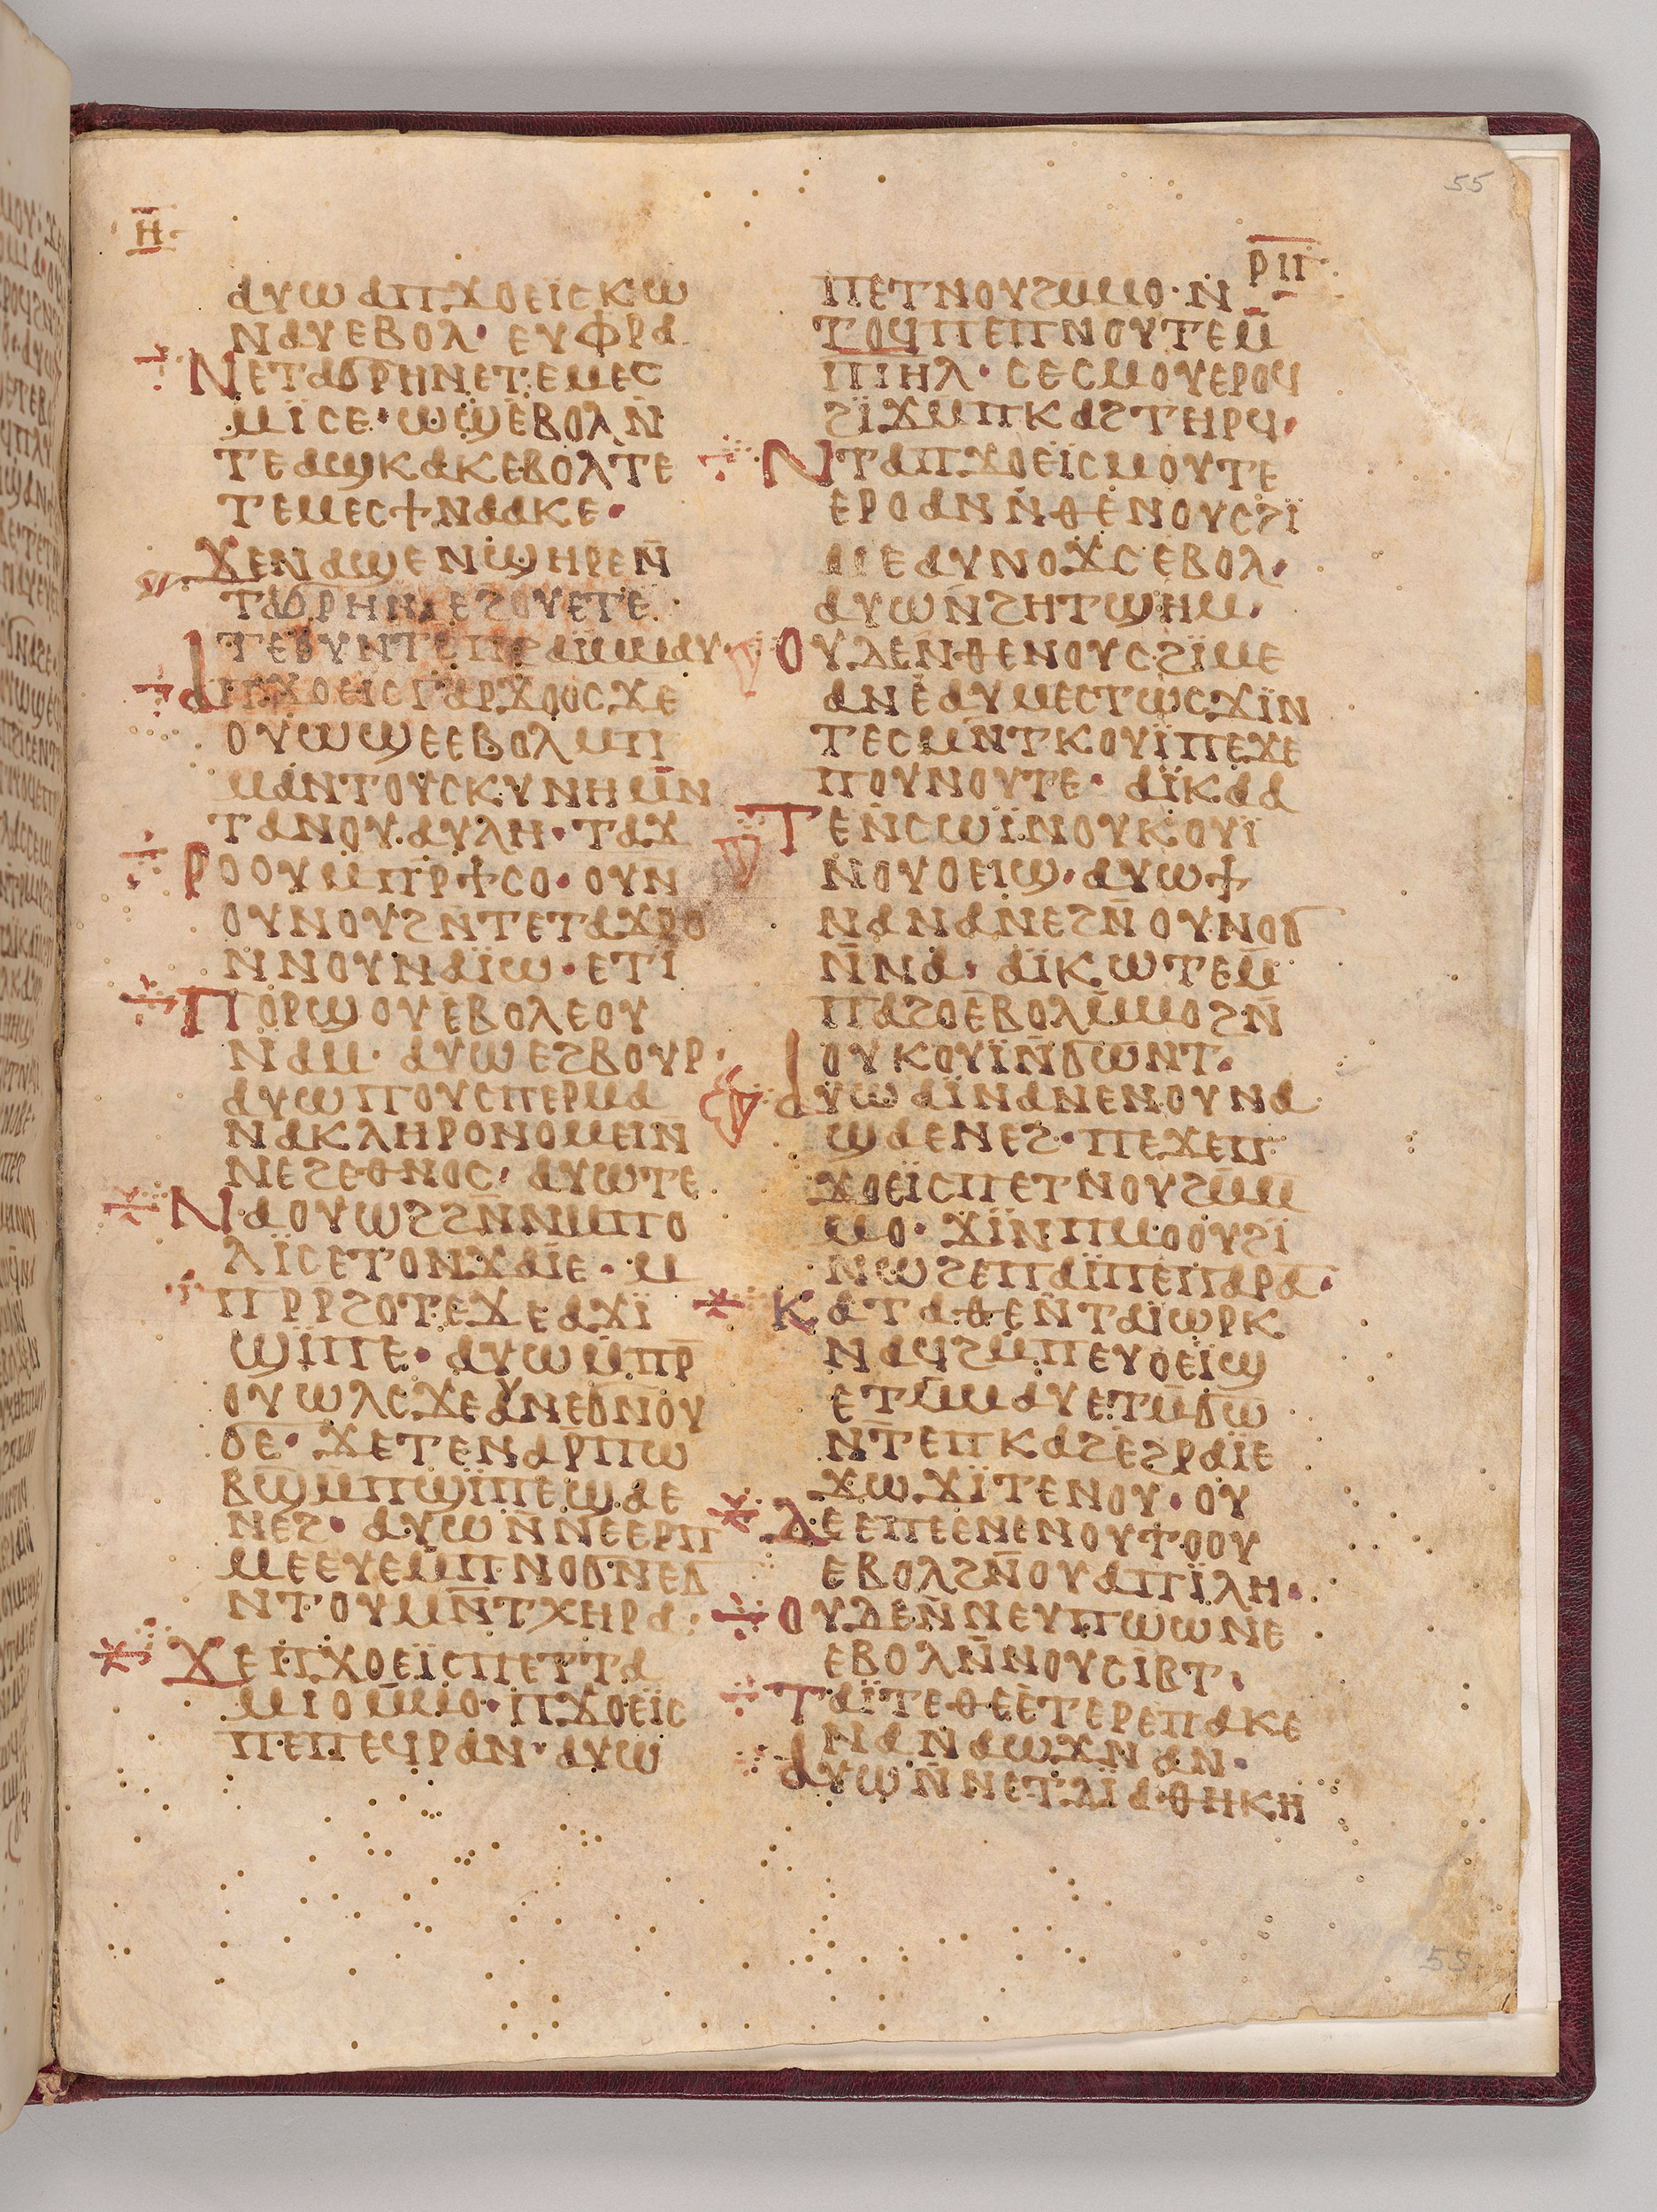 55
Ⲏ̅
ⲣⲡ̅
ⲁⲩⲱⲁⲡϫⲟⲉⲓ̈ⲥⲕⲱ
ⲛⲁⲩⲉⲃⲟⲗ· ⲉⲩⲫⲣⲁ
ⲛⲉⲧⲁϭⲣⲏⲛⲉⲧⲉⲙⲉⲥ
ⲙⲓ̈ⲥⲉ· ⲱϣⲉⲃⲟⲗⲛ̄
ⲧⲉⲁϣⲕⲁⲕⲉⲃⲟⲗⲧⲉ
ⲧⲉⲙⲉⲥϯⲛⲁⲁⲕⲉ·
ϫⲉⲛⲁϣⲉⲛϣⲏⲣⲉⲛ̄
ⲧⲁϭⲣⲏⲛⲉϩⲟⲩⲉⲧⲉ
ⲧⲉⲟⲩⲛⲧⲉⲡϩⲁⲓ̈ⲙⲙⲁⲩ·
ⲁⲡϫⲟⲉⲓⲥⲅⲁⲣϫⲟⲟⲥϫⲉ
ⲟⲩⲱϣⲉⲉⲃⲟⲗⲙⲡⲓ
ⲙⲁⲛⲧⲟⲩⲥⲕⲩⲛⲏⲙ̄ⲛ
ⲧⲁⲛⲟⲩⲁⲩⲗⲏ· ⲧⲁϫ
ⲣⲟⲟⲩⲙⲡⲣ̄ϯⲥⲟ· ⲟⲩⲛ̄
ⲟⲩⲛⲟⲩϩⲛ̄ⲧⲉⲧⲁϫⲣⲟ
ⲛ̄ⲛⲟⲩⲛⲁⲓ̈ⲱ· ⲉⲧⲓ
ⲡⲟⲣϣⲟⲩⲉⲃⲟⲗⲉⲟⲩ
ⲛⲁⲙ· ⲁⲩⲱⲉϩⲃⲟⲩⲣ·
ⲁⲩⲱⲡⲟⲩⲥⲡⲉⲣⲙⲁ
ⲛⲁⲕⲗⲏⲣⲟⲛⲟⲙⲉⲓⲛ̄
ⲛⲉϩⲉⲑⲛⲟⲥ· ⲁⲩⲱⲧⲉ
ⲛⲁⲟⲩⲱϩϩⲛ̄ⲛⲙⲡⲟ
ⲗⲓ̈ⲥⲉⲧⲟⲛϫⲁⲓ̈ⲉ· ⲙ
ⲡⲣ̄ⲣϩⲟⲧⲉϫⲉⲁϫⲓ̈
ϣⲓ̈ⲡⲉ· ⲁⲩⲱⲙ̄ⲡⲣ̄
ⲟⲩⲱⲗⲥϫⲉⲁⲩⲛⲉϭⲛⲟⲩ
ϭⲉ· ϫⲉⲧⲉⲛⲁⲣ̄ⲡⲱ
ⲃϣ̄ⲙⲡϣⲓ̈ⲡⲉϣⲁⲉ
ⲛⲉϩ· ⲁⲩⲱⲛ̄ⲛⲉⲉⲣⲡ
ⲙⲉⲉⲩⲉⲙ̄ⲡⲛⲟϭⲛⲉϭ
ⲛⲧⲟⲩⲙⲛ̄ⲧⲭⲏⲣⲁ·
ϫⲉⲡϫⲟⲉⲓ̈ⲥⲡⲉⲧⲧⲁ
ⲙⲓⲟⲙ̄ⲙⲟ· ⲡϫⲟⲉⲓ̈ⲥ
ⲡⲉⲡⲉϥⲣⲁⲛ· ⲁⲩⲱ
ⲡⲉⲧⲛⲟⲩϩⲙⲙⲟ· ⲛ̄
ⲧⲟϥⲡⲉⲡⲛⲟⲩⲧⲉⲙ̄
ⲡⲓ̄ⲏ̄ⲗ̄· ⲥⲉⲥⲙⲟⲩⲉⲣⲟϥ
ϩⲓ̈ϫⲙⲡⲕⲁϩⲧⲏⲣϥ·
ⲛⲧⲁⲡϫⲟⲉⲓ̈ⲥⲙⲟⲩⲧⲉ
ⲉⲣⲟⲁⲛⲛ̄ⲑⲉⲛⲟⲩⲥϩⲓ̈
ⲙⲉⲁⲩⲛⲟϫⲥⲉⲃⲟⲗ·
ⲁⲩⲱⲛ̄ϩⲏⲧϣⲏⲙ·
ⲟⲩⲇⲉⲛⲑⲉⲛⲟⲩⲥϩⲓ̈ⲙⲉ
ⲁⲛⲉⲁⲩⲙⲉⲥⲧⲱⲥϫⲓ̈ⲛ
ⲧⲉⲥⲙⲛ̄ⲧⲕⲟⲩⲓ̈ⲡⲉϫⲉ
ⲡⲟⲩⲛⲟⲩⲧⲉ· ⲁⲓ̈ⲕⲁⲁ
ⲧⲉⲛ̄ⲥⲱⲓ̈ⲛⲟⲩⲕⲟⲩⲓ̈
ⲛⲟⲩⲟⲉⲓϣ· ⲁⲩⲱϯ
ⲛⲁⲛⲁⲛⲉϩⲛ̄ⲟⲩⲛⲟϭ
ⲛ̄ⲛⲁ· ⲁⲓ̈ⲕⲱⲧⲉⲙ
ⲡⲁϩⲟⲉⲃⲟⲗⲙ̄ⲙⲟϩⲛ̄
ⲟⲩⲕⲟⲩⲓ̈ⲛ̄ϭⲱⲛⲧ·
ⲁⲩⲱⲁⲓ̈ⲛⲁⲛⲉⲛⲟⲩⲛⲁ
ϣⲁⲉⲛⲉϩ· ⲡⲉϫⲉⲡ
ϫⲟⲉⲓ̈ⲥⲡⲉⲧⲛⲟⲩϩⲙ̄ⲙ
ⲙⲟ· ϫⲓ̈ⲛⲡⲙⲟⲟⲩϩⲓ
ⲛⲱϩⲉⲡⲁⲓ̈ⲡⲉⲡⲁⲣⲁ·
ⲕⲁⲧⲁⲑⲉⲛ̄ⲧⲁⲓ̈ⲱⲣⲕ
ⲛⲁϥϩⲙ̄ⲡⲉⲩⲟⲉⲓ̈ϣ
ⲉⲧⲙ̄ⲙⲁⲩⲉⲧⲙ̄ϭⲱ
ⲛⲧⲉⲡⲕⲁϩⲉϩⲣⲁⲓ̈ⲉ
ϫⲱϫⲓ̈ⲧⲉⲛⲟⲩ· ⲟⲩ
ⲇⲉⲉⲡⲉⲉⲛⲉⲛⲟⲩⲧⲟⲟⲩ
ⲉⲃⲟⲗϩⲛ̄ⲟⲩⲁⲡⲓ̈ⲗⲏ·
ⲟⲩⲇⲉⲛ̄ⲛⲉⲩⲡⲱⲱⲛⲉ
ⲉⲃⲟⲗⲛ̄ⲛⲟⲩⲥⲓⲃⲧ·
ⲧⲁⲓ̈ⲧⲉⲑⲉⲉⲧⲉⲣⲉⲡⲁⲕⲉ
ⲛⲁⲛⲁⲱϫⲛⲁⲛ·
ⲁⲩⲱⲛ̄ⲛⲉⲧⲇⲓ̈ⲁⲑⲏⲕⲏ
55